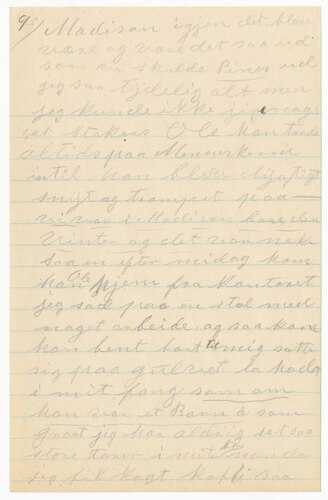 9/ Madison igjen det blev
være og være det saa ud
som vi skulde Pines ud
jeg saa tydelig alt men
jeg kunde ikke
set Stakers Ole han trode
altids paa Menneskerne
intil han blev
snyt og trampet paa
vi var i Madison den
Vinten og det var
saa en efter midag kom
han Ole hjem fra Kantoret
jeg sad paa en stol med
noget arbeide og saa kom
han bent bort til mig satte
sig paa gulvet la hodet
i mit fang som om
han var et Barn & som
Graat jeg har aldrig set saa
store tarer i mit
jeg fik kagt Kaffi saa